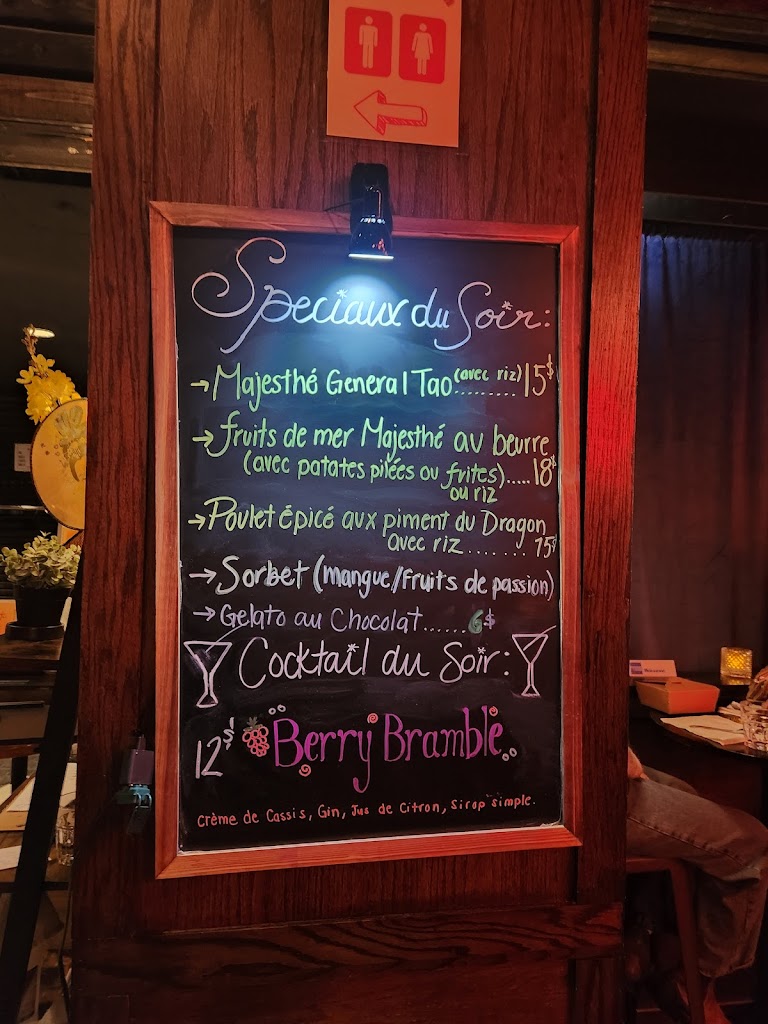 Speciaux du Soir:
→ Majesthé General Tao (avec riz)......... 15$
→ fruits de mer Majesthé au beurre
(avec patates pilées ou frites)..... 18$
ou riz
→ Poulet épicé aux piment du Dragon
avec riz........ 15$
→ Sorbet (mangue/fruits de passion)
→ Gelato au Chocolat...... 6$
Cocktail du Soir:
12$ Berry Bramble
Crème de Cassis, Gin, Jus de Citron, Sirop simple.